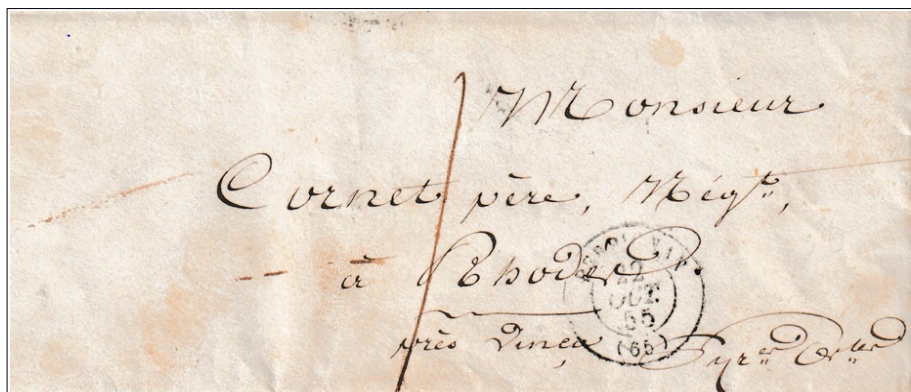 Monsieur
Cornet père, Négt,
à Rhodès
près Vinça Pyrées Orles
22
OCT.
55
(65)